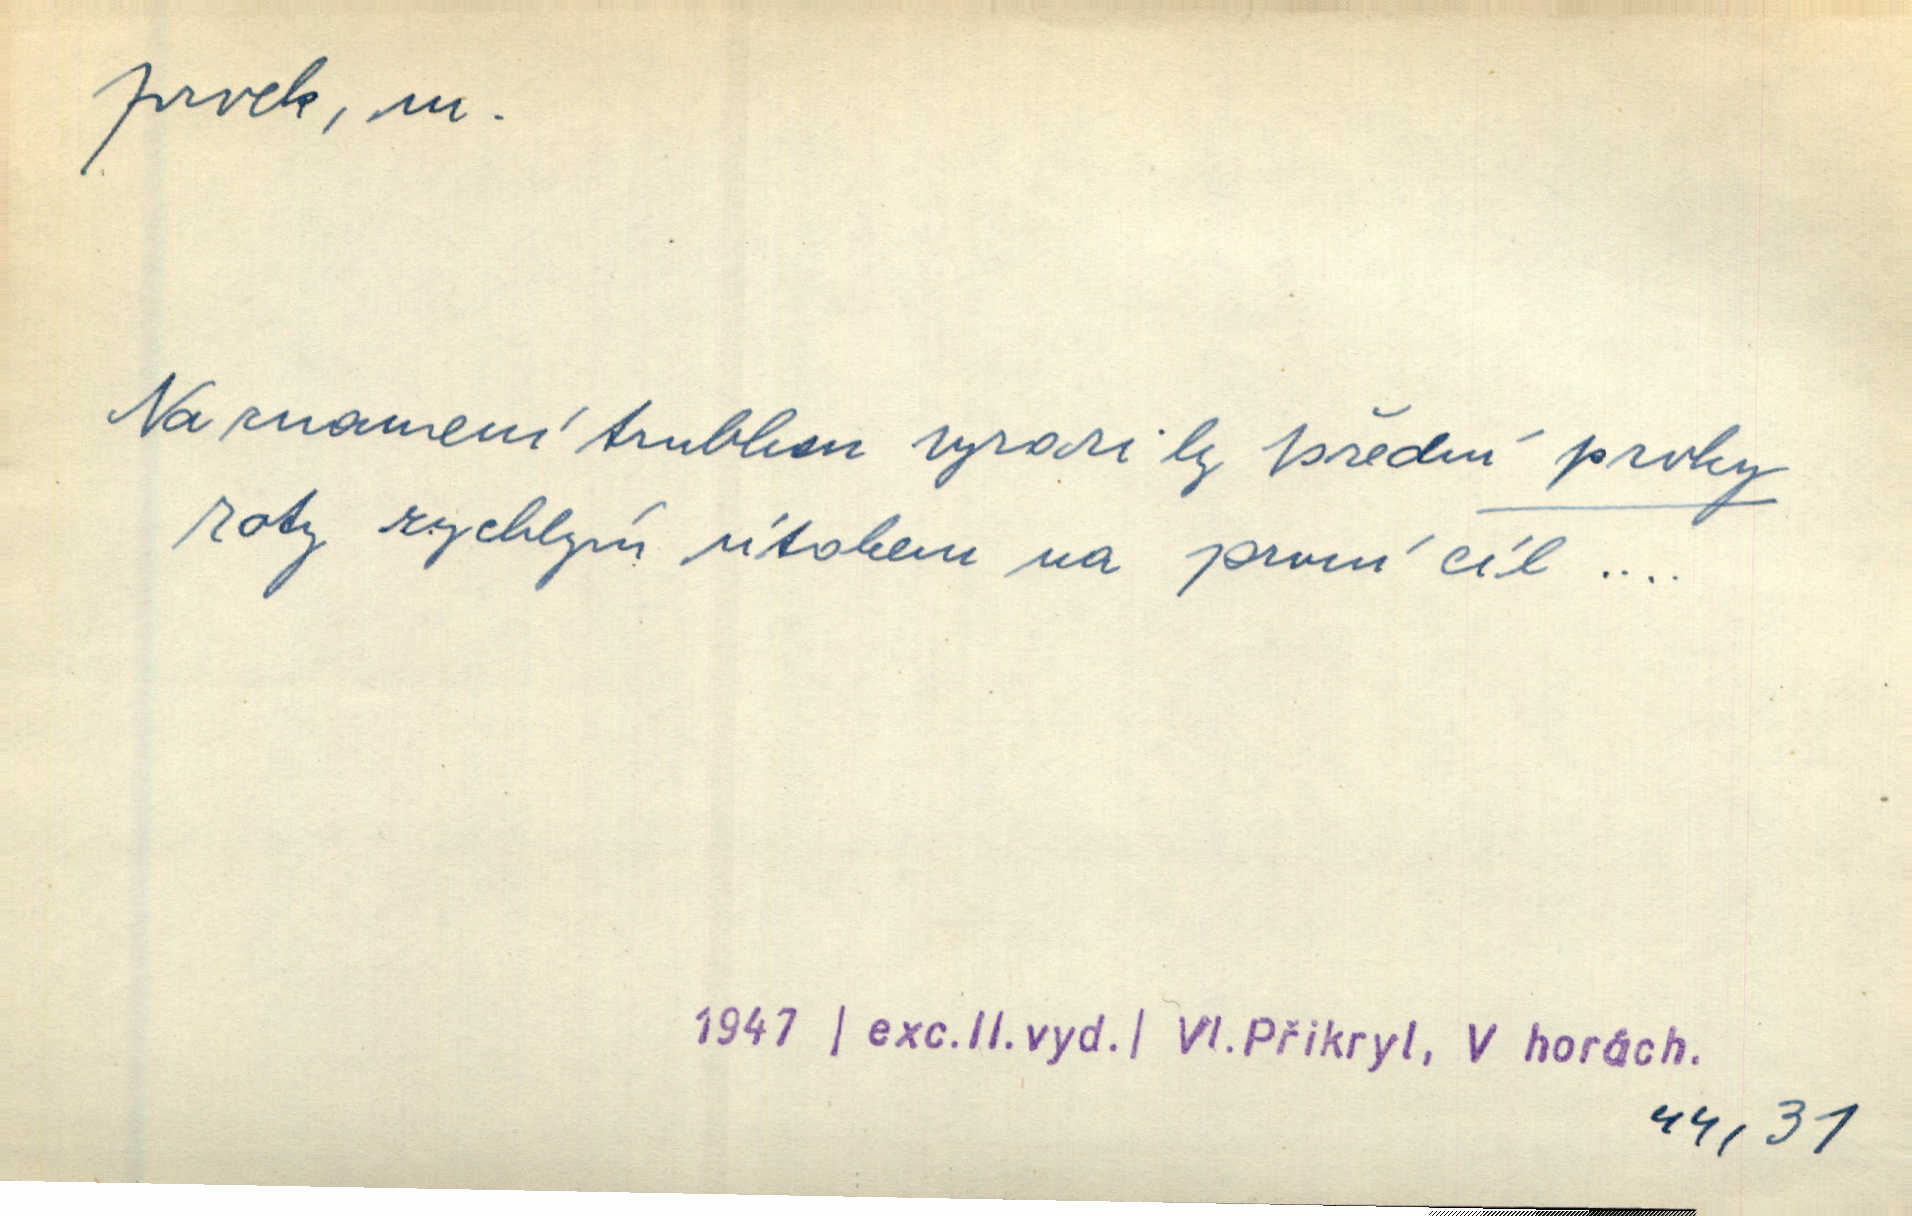 prvek, m.
Na znamení trubkou vyrazily přední prvky
roty rychlým útokem na první cíl ....
1947 | exc.II.vyd.| Vl.Přikryl, V horách.
44, 31